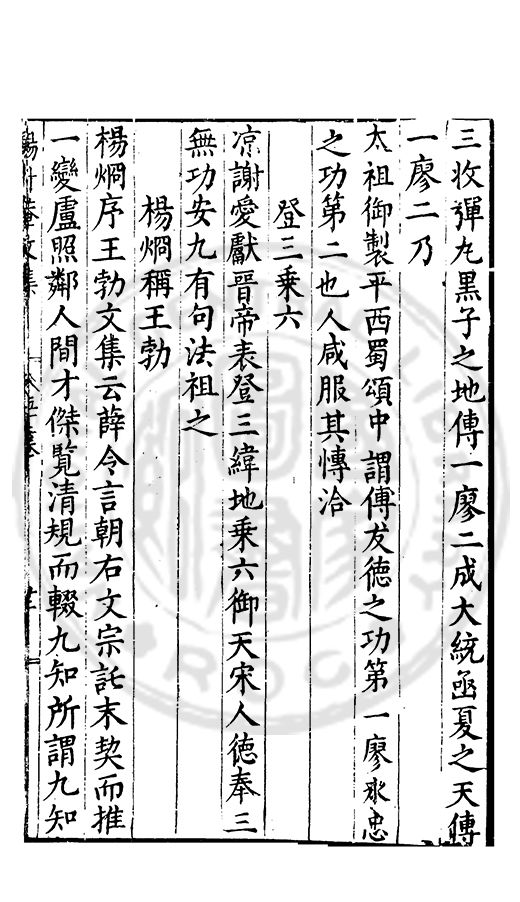 三收彈丸黒子之地傳一廖二成大統亟夏之天傅
一廖二乃
太祖御製平西蜀頌中謂傅友德之功第一廖永忠
之功第二也人咸服其慱洽
登三乗六
凉謝愛獻晉帝表登三緯地乗六御天宋人徳奉三
無功安九有句法祖之
楊烱稱王勃
楊烱序王勃文集云薛令言朝右文宗託末契而推
一變盧照鄰人間才傑覧清規而輟九知所謂九知